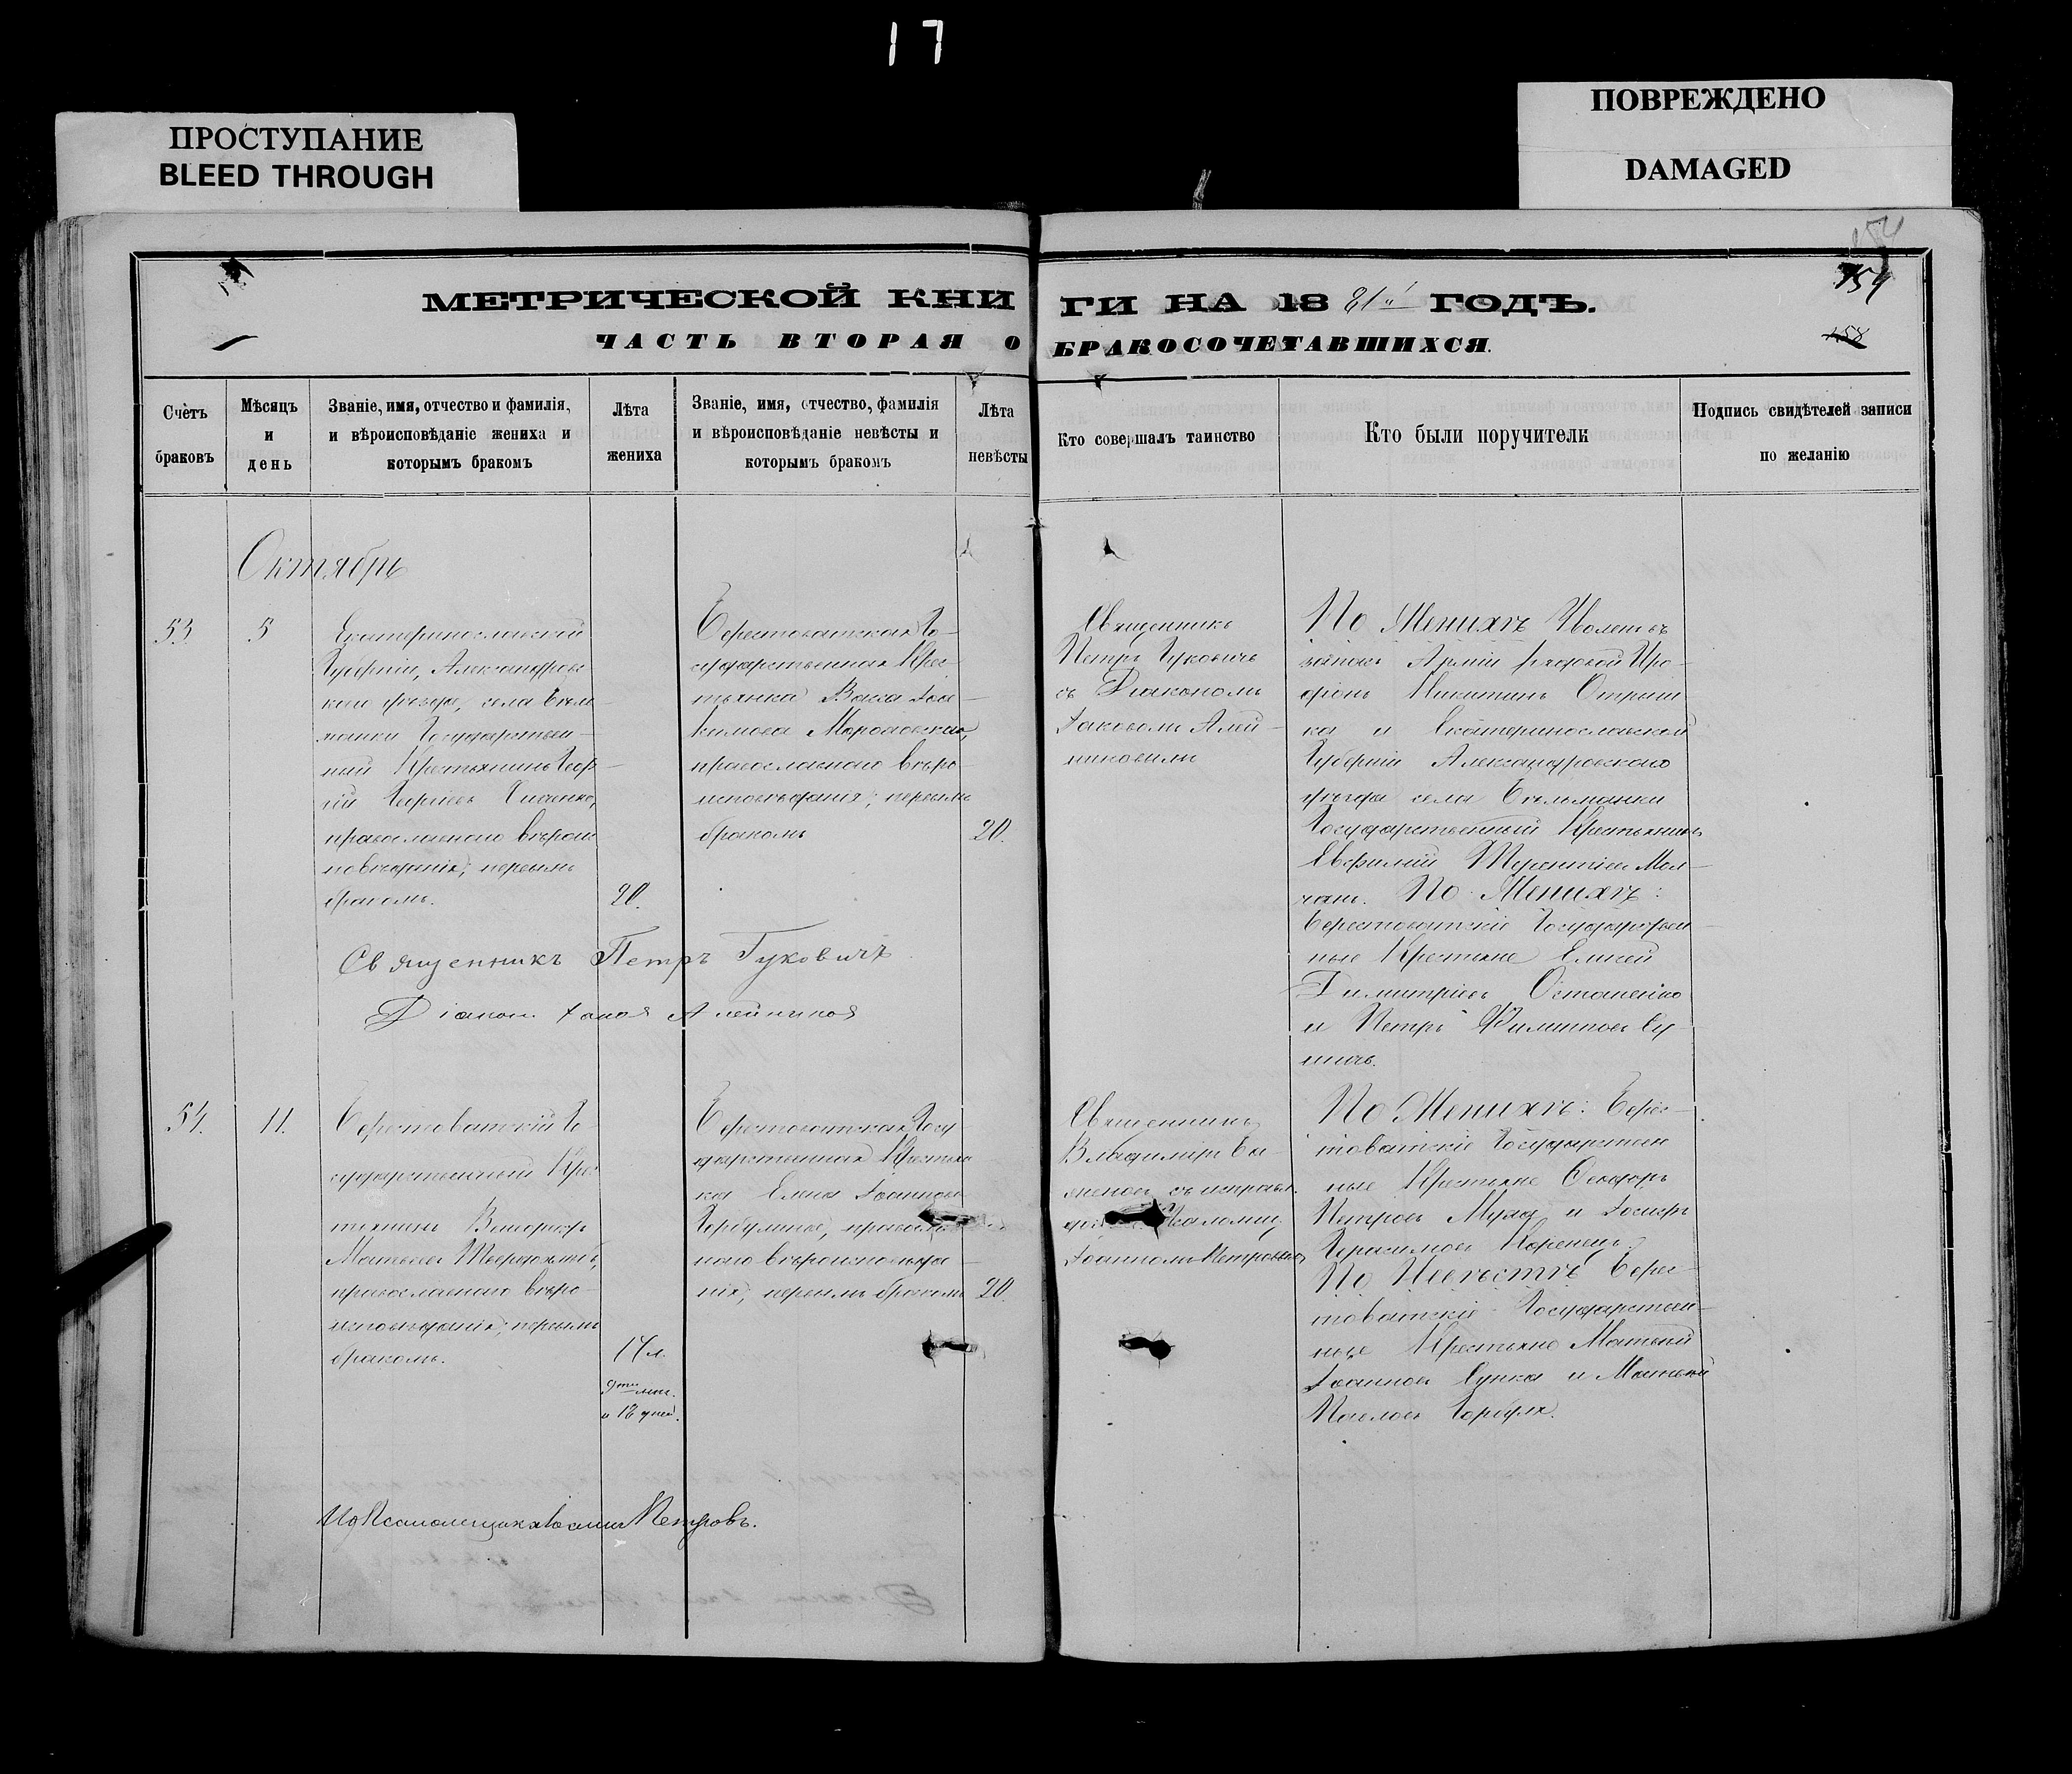 17
ПРОСТУПАНИЕ
BLEED THROUGH
ПОВРЕЖДЕНО
DAMAGED
154
159
МЕТРИЧЕСКОЙ КНИГИ НА 1881й ГОДЪ.
ЧАСТЬ ВТОРАЯ О БРАКОСОЧЕТАВШИХСЯ.
158
Счетъ браковъ
Мѣсяцъ и день
Званіе, имя, отчество и фамилія,
и вѣроисповѣданіе жениха и
которымъ бракомъ
Лѣта жениха
Званіе, имя, отчество, фамилія
и вѣроисповѣданіе невѣсты и
которымъ бракомъ
Лѣта невѣсты
Кто совершалъ таинство
Кто были поручители
Подпись свидѣтелей записи
по желанію
Октябрь
53.
5
Екатеринославской
Губерніи, Александровс-
каго уѣзда, села Бѣль-
манки Государствен-
ный Крестьянинъ Геор-
гій Георгіевъ
православнаго вѣроис-
повѣданія; первымъ
бракомъ.
20.
Берестоватская Го-
сударственная Крес-
тьянка Васса Іоа-
кимова
православнаго вѣро-
исповѣданія; первымъ
бракомъ
20.
Священникъ
Петръ Гуковичъ
съ Діакономъ
Іаковомъ Алей-
никовымъ
По Женихѣ Уволенъ въ
запасъ Арміи рядовой
Никитинъ
и Екатеринославской
Губерніи Александровскаго
уѣзда села Бѣльманки
Государственный Крестьянинъ
Евфимій Терентіевъ Мол-
чанъ. По Женихѣ:
Берестоватскіе Государствен-
ные Крестьяне Елисей
Димитріевъ Остапенко
и Петръ Филиповъ
Священникъ Петръ Гуковичъ
Діаконъ Іаковъ Алейниковъ
54.
11.
Берестоватскій Го-
сударственный Крес-
тьянинъ
Матвѣевъ
православнаго вѣро-
исповѣданія; первымъ
бракомъ.
17 л.
9ть мѣс.
и 18 дней.
Берестоватская Госу-
дарственная Крестьян-
ка Елена Іоаннова
православ-
наго вѣроисповѣда-
нія; первымъ бракомъ
20.
Священникъ
Владиміръ Ба-
женовъ съ исправл.
Псаломщ.
Іоанномъ Петровымъ
По Женихѣ: Берес-
товатскіе Государствен-
ные Крестьяне Ѳеодоръ
Петровъ Муха и Іосифъ
Герасимовъ Коренецъ.
По Невѣстѣ Берес-
товатскіе Государствен-
ные Крестьяне Матвѣй
Іоанновъ и Матвѣй
Павловъ Горбуля.
Ид Псаломщика Іоаннъ Петровъ.